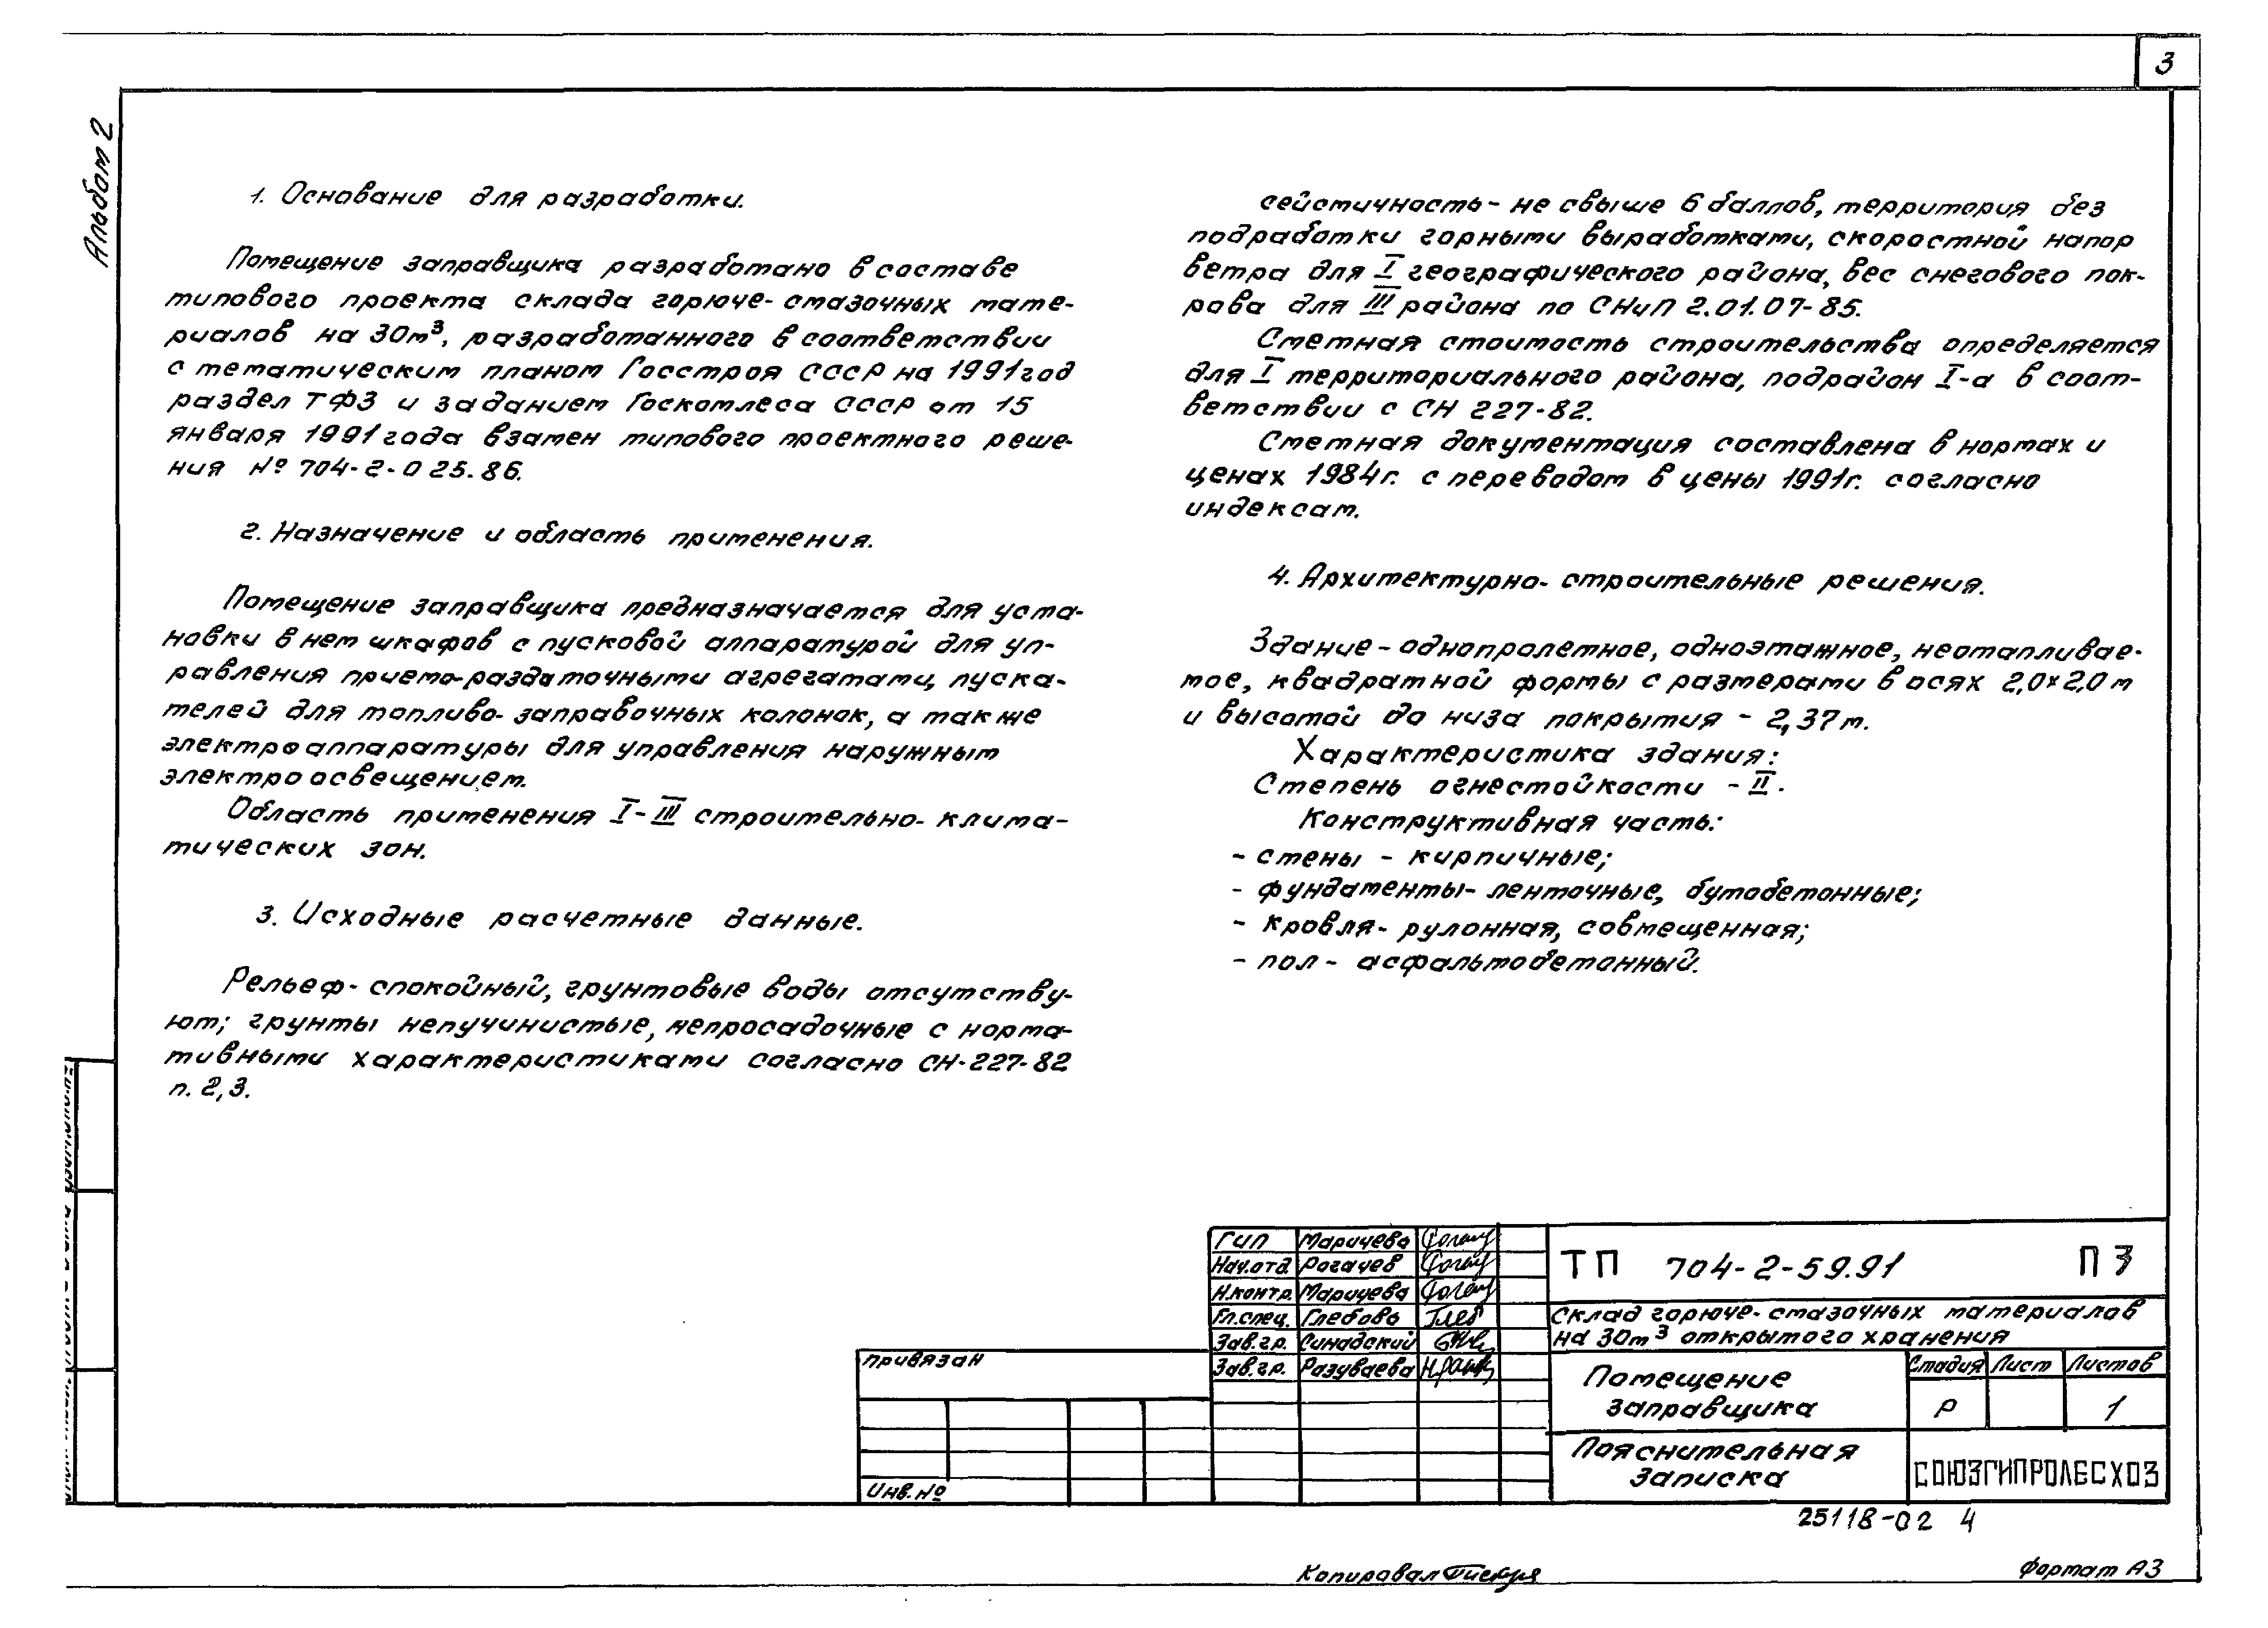 3
Альбом 2
1. Основание для разработки.
Помещение заправщика разработано в составе
типового проекта склада горюче-смазочных мате-
риалов на 30м³, разработанного в соответствии
с тематическим планом Госстроя СССР на 1991 год
раздел ТФ3 и заданием Госкомлеса СССР от 15
января 1991 года взамен типового проектного реше-
ния № 704-2-025.86.
2. Назначение и область применения.
Помещение заправщика предназначается для уста-
новки в нем шкафов с пусковой аппаратурой для уп-
равления приемо-раздаточными агрегатами, пуска-
телей для топливо-заправочных колонок, а также
электроаппаратуры для управления наружным
электроосвещением.
Область применения I-III строительно-клима-
тических зон.
3. Исходные расчетные данные.
Рельеф - спокойный, грунтовые воды отсутству-
ют; грунты непучинистые, непросадочные с норма-
тивными характеристиками согласно СН-227-82
п. 2,3.
сейсмичность - не свыше 6 баллов, территория без
подработки горными выработками, скоростной напор
ветра для I географического района, вес снегового пок-
рова для III района по СНиП 2.01.07-85.
Сметная стоимость строительства определяется
для I территориального района, подрайон I-а в соот-
ветствии с СН 227-82.
Сметная документация составлена в нормах и
ценах 1984г. с переводом в цены 1991г. согласно
индексам.
4. Архитектурно-строительные решения.
Здание - однопролетное, одноэтажное, неотапливае-
мое, квадратной формы с размерами в осях 2,0×2,0м
и высотой до низа покрытия - 2,37м.
Характеристика здания:
Степень огнестойкости - II.
Конструктивная часть:
- стены - кирпичные;
- фундаменты - ленточные, бутобетонные;
- кровля - рулонная, совмещенная;
- пол - асфальтобетонный.
Гип Маричева
Нач.отд. Рогачев
Н.контр. Маричева
Гл.спец. Глебова
Зав.гр. Синадский
Зав.гр. Разуваева
привязан
Инв.№
ТП 704-2-59.91 ПЗ
Склад горюче-смазочных материалов
на 30м³ открытого хранения
Помещение
заправщика
Стадия Лист Листов
Р 1
Пояснительная
записка
СОЮЗГИПРОЛЕСХОЗ
25118-02 4
Копировал
Формат А3